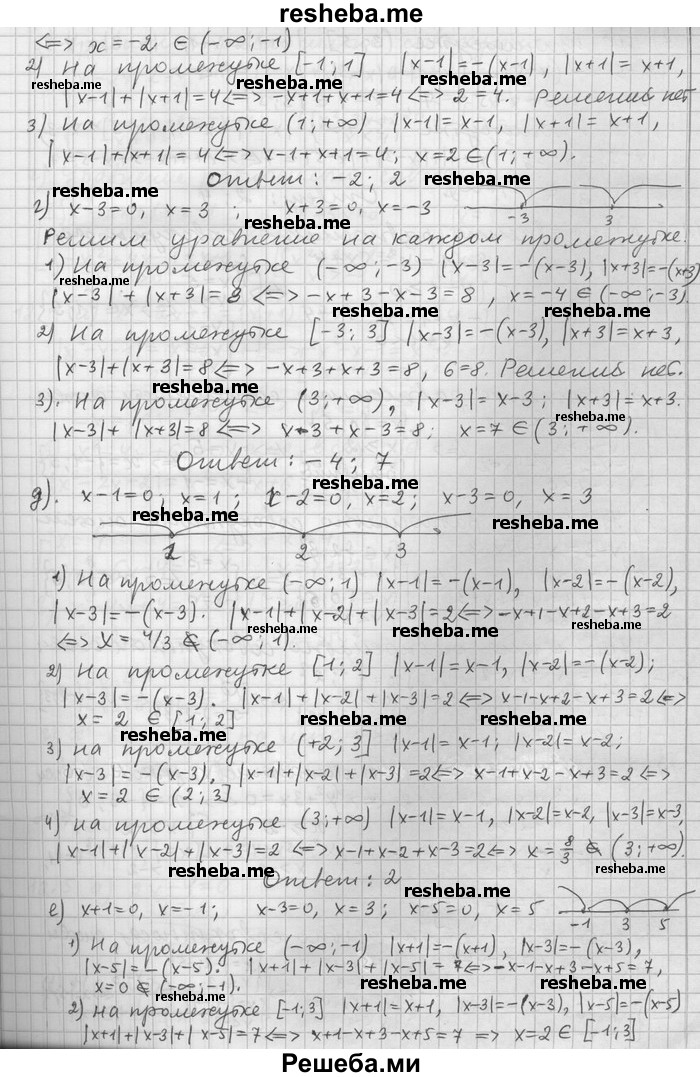 resheba.me
<=> x = -2 ∈ (-∞; -1)
2) На промежутке [-1; 1] |x-1| = -(x-1), |x+1| = x+1,
|x-1|+|x+1|=4 <=> -x+1+x+1=4 <=> 2=4. Решений нет
resheba.me resheba.me
3) На промежутке (1; +∞) |x-1|=x-1, |x+1|=x+1,
|x-1|+|x+1|=4 <=> x-1+x+1=4; x=2 ∈ (1; +∞).
Ответ: -2; 2 resheba.me
resheba.me
г) x-3=0, x=3 ; x+3=0, x=-3
resheba.me -3 3
Решим уравнение на каждом промежутке.
1) На промежутке (-∞; -3) |x-3|=-(x-3), |x+3|=-(x+3)
resheba.me
|x-3|+|x+3|=8 <=> -x+3-x-3=8, x=-4 ∈ (-∞; -3).
resheba.me resheba.me
2) На промежутке [-3; 3] |x-3|=-(x-3), |x+3|=x+3,
|x-3|+|x+3|=8 <=> -x+3+x+3=8, 6=8. Решений нет.
resheba.me resheba.me
3). На промежутке (3; +∞), |x-3|=x-3; |x+3|=x+3.
resheba.me
|x-3|+|x+3|=8 <=> x-3+x-3=8; x=7 ∈ (3; +∞).
Ответ: -4; 7
resheba.me
д). x-1=0, x=1; x-2=0, x=2; x-3=0, x=3
resheba.me resheba.me
1 2 3
1) На промежутке (-∞; 1) |x-1|=-(x-1), |x-2|=-(x-2),
|x-3|=-(x-3). |x-1|+|x-2|+|x-3|=2 <=> -x+1-x+2-x+3=2
resheba.me resheba.me
<=> x = 4/3 ∉ (-∞; 1).
2) На промежутке [1; 2] |x-1|=x-1, |x-2|=-(x-2);
|x-3|=-(x-3). |x-1|+|x-2|+|x-3|=2 <=> x-1-x+2-x+3=2 <=>
x = 2 ∈ [1; 2] resheba.me resheba.me
resheba.me
3) на промежутке (+2; 3] |x-1|=x-1; |x-2|=x-2;
|x-3|=-(x-3), |x-1|+|x-2|+|x-3|=2 <=> x-1+x-2-x+3=2 <=>
x = 2 ∈ (2; 3]
4) на промежутке (3; +∞) |x-1|=x-1, |x-2|=x-2, |x-3|=x-3,
|x-1|+|x-2|+|x-3|=2 <=> x-1+x-2+x-3=2 <=> x = 8/3 ∉ (3; +∞).
resheba.me resheba.me resheba.me
Ответ: 2 resheba.me
е) x+1=0, x=-1; x-3=0, x=3; x-5=0, x=5
-1 3 5
1) На промежутке (-∞; -1) |x+1|=-(x+1), |x-3|=-(x-3),
resheba.me resheba.me
|x-5|=-(x-5). |x+1|+|x-3|+|x-5|=7 <=> -x-1-x+3-x+5=7,
x=0 ∉ (-∞; -1). resheba.me resheba.me
resheba.me
2) на промежутке [-1; 3] |x+1|=x+1, |x-3|=-(x-3), |x-5|=-(x-5)
|x+1|+|x-3|+|x-5|=7 <=> x+1-x+3-x+5=7 => x=2 ∈ [-1; 3]
Решеба.ми